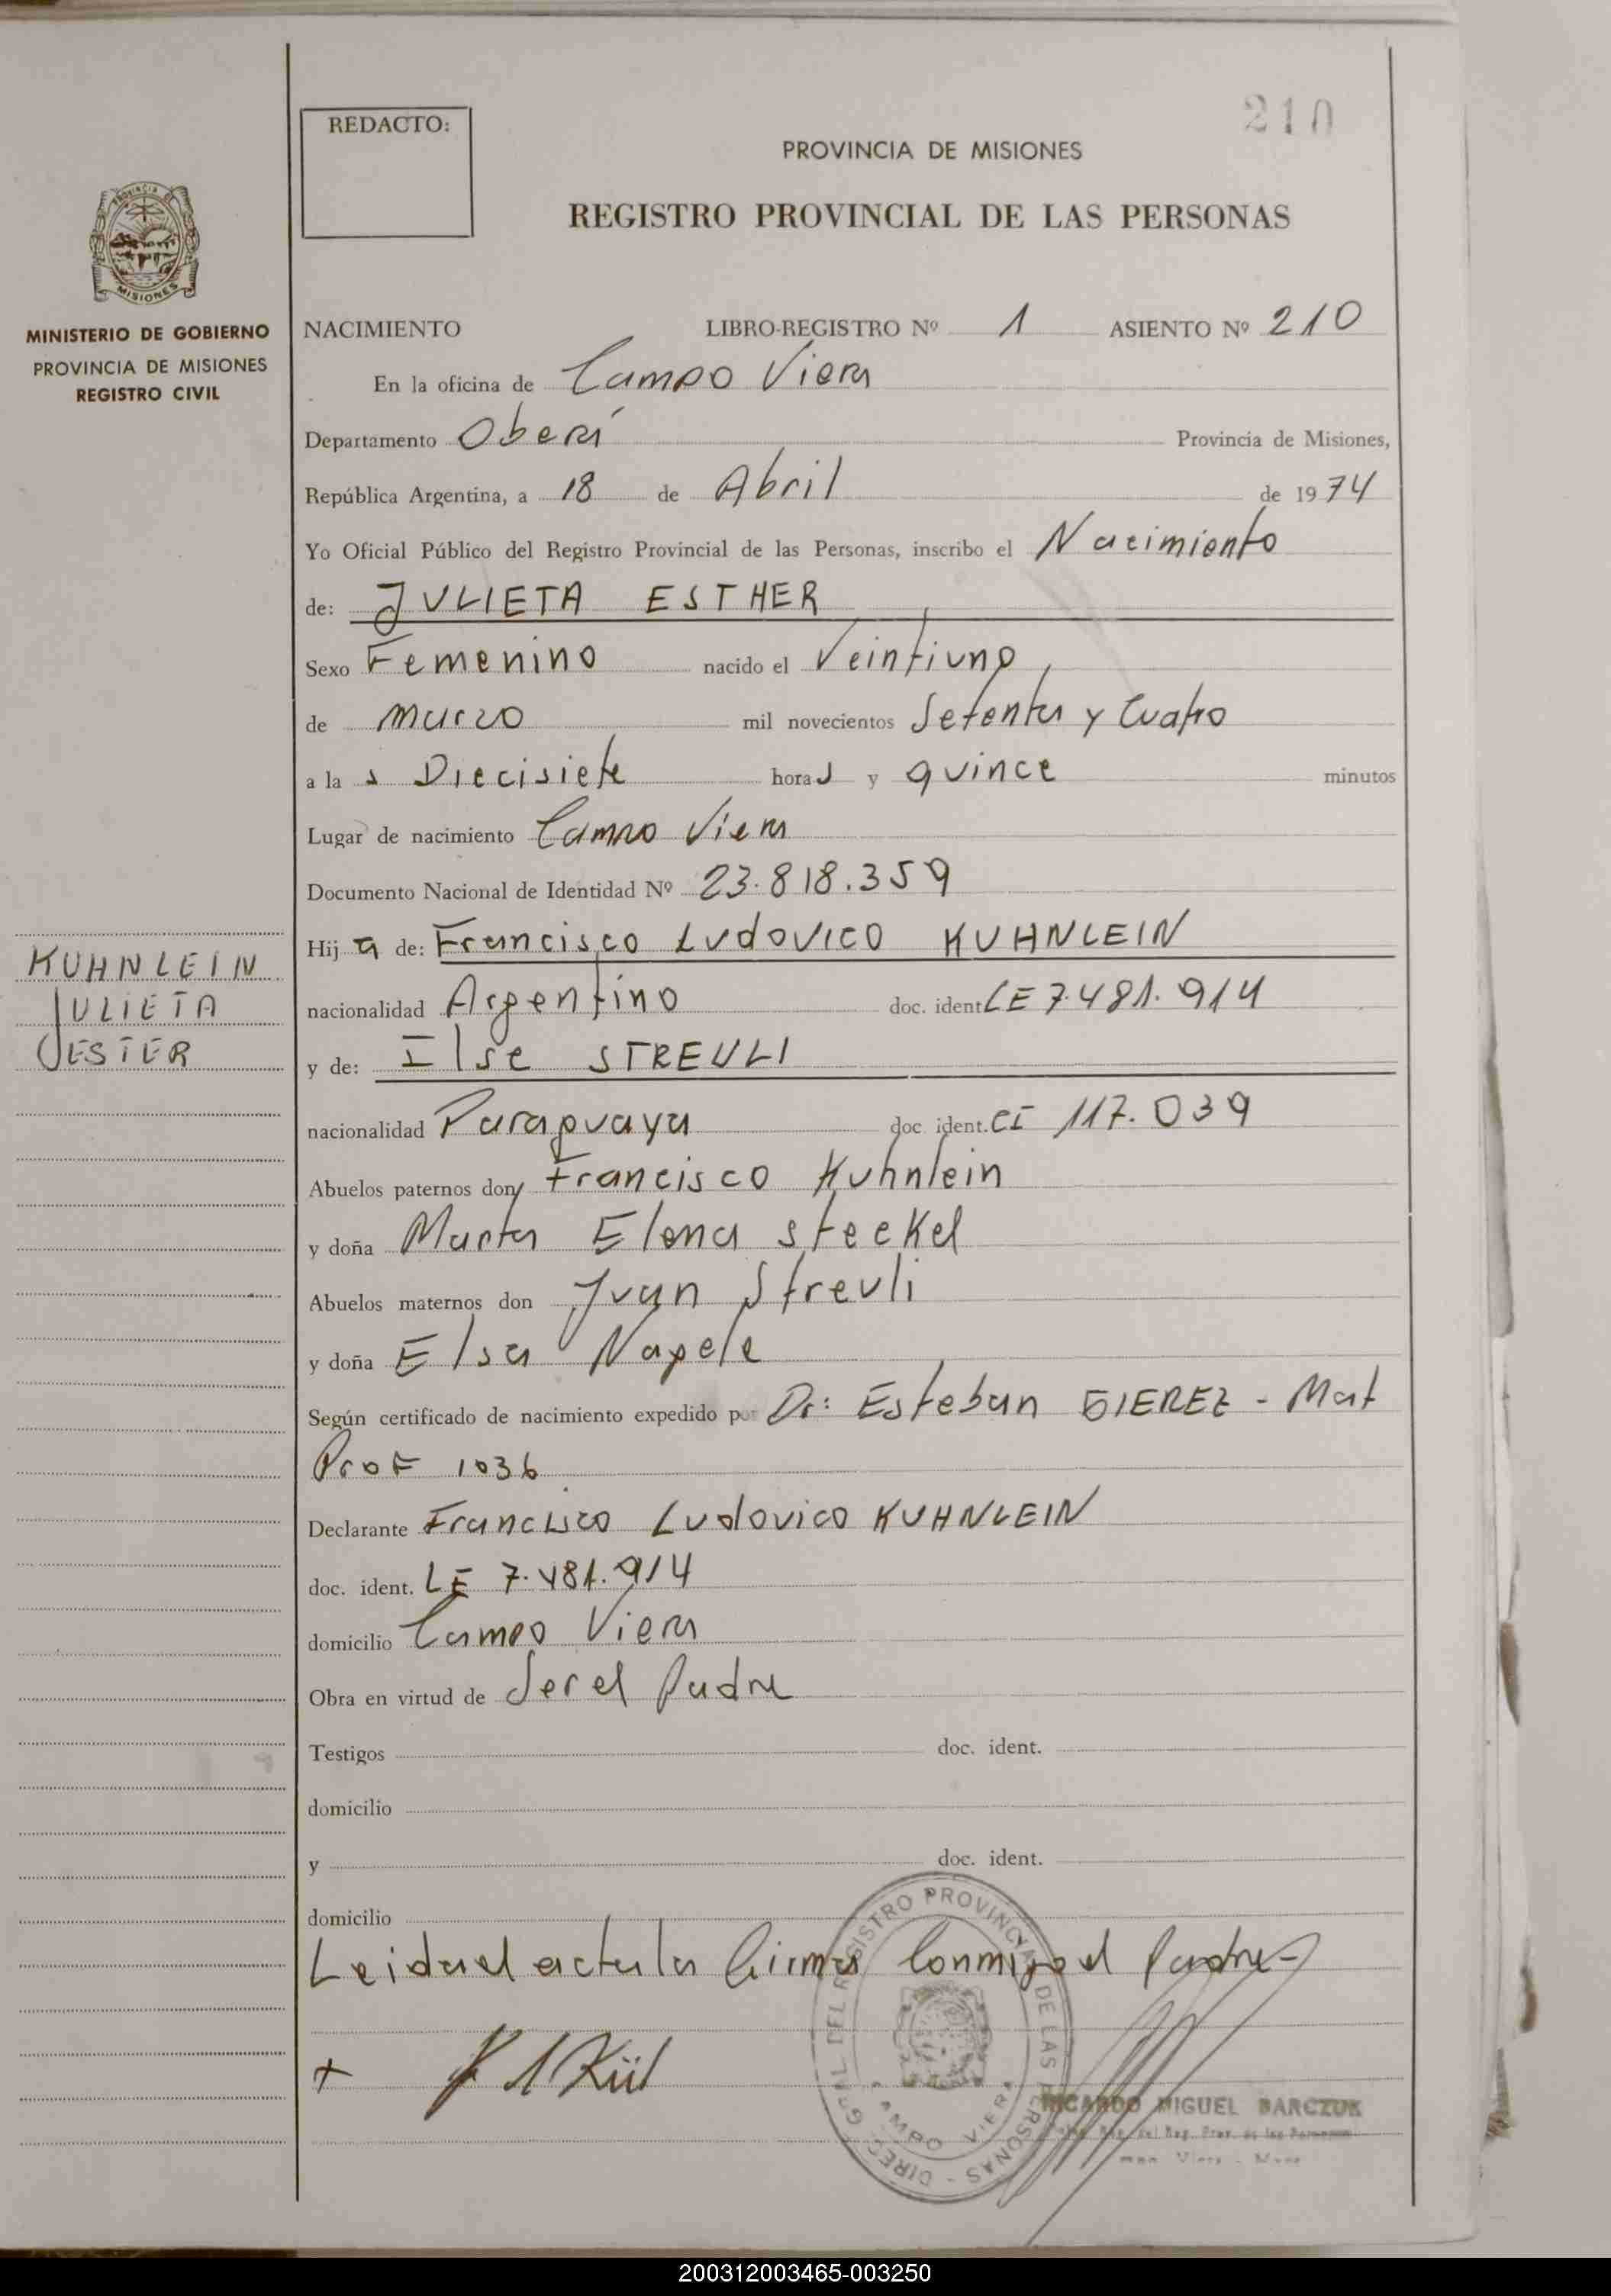 210
REDACTO:
PROVINCIA DE MISIONES
REGISTRO PROVINCIAL DE LAS PERSONAS
PROVINCIA DE
MISIONES
MINISTERIO DE GOBIERNO
PROVINCIA DE MISIONES
REGISTRO CIVIL
NACIMIENTO LIBRO-REGISTRO Nº 1 ASIENTO Nº 210
En la oficina de Campo Viera
Departamento Oberá Provincia de Misiones,
República Argentina, a 18 de Abril de 1974
Yo Oficial Público del Registro Provincial de las Personas, inscribo el Nacimiento
de: JULIETA ESTHER
Sexo Femenino nacido el Veintiuno
de marzo mil novecientos Setenta y Cuatro
a las Diecisiete horas y quince minutos
Lugar de nacimiento Campo Viera
Documento Nacional de Identidad Nº 23.818.359
Hija de: Francisco Ludovico KUHNLEIN
nacionalidad Argentino doc. ident LE 7.481.914
y de: Ilse STREULI
nacionalidad Paraguaya doc. ident. CI 117.039
Abuelos paternos don Francisco Kuhnlein
y doña Marta Elena steckel
Abuelos maternos don Juan Streuli
y doña Elsa Nagele
Según certificado de nacimiento expedido por Dr: Esteban GIEREZ - Mat
Prof 1036
Declarante Francisco Ludovico KUHNLEIN
doc. ident. LE 7.481.914
domicilio Campo Viera
Obra en virtud de Ser el Padre
Testigos doc. ident.
domicilio
y doc. ident.
domicilio
Leida el acta la firma Conmigo el Padre-
KUHNLEIN
JULIETA
ESTER
DIRECC. GRAL DEL REGISTRO PROVINCIAL DE LAS PERSONAS -
CAMPO VIERA
RICARDO MIGUEL BARCZUK
del Reg. Prov. de las Personas
Viera
200312003465-003250